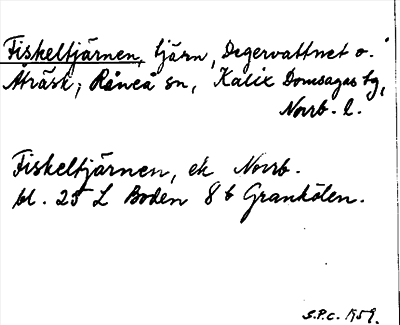 Fiskeltjärnen, tjärn, Degervattnet o.
Åträsk, Råneå sn, Kalix Domsagas tg,
Norrb. l.
Fiskeltjärnen, ek Norrb.
bl. 25 L Boden 8 b Granhölen.
S.P.C. 1959.